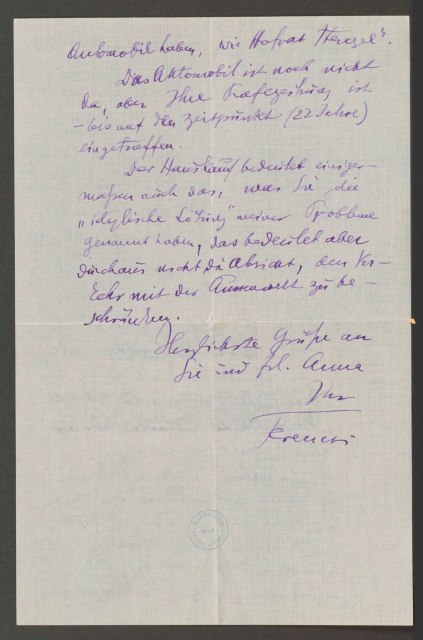 Automobil haben, wie Hofrat
Das Automobil ist noch nicht
da, aber Ihre Profezeihung ist
– bis auf den Zeitpunkt (22 Jahre)
eingetroffen.
Der Hauskauf bedeutet einiger-
maßen auch das, was Sie die
„idyllische Lösung" meiner Probleme
genannt haben, das bedeutet aber
durchaus nicht die Absicht, den Ver-
kehr mit der Aussenwelt zu be-
schränken.
Herzlichste Grüße an
Sie und Frl. Anna
Ihr
Ferenczi